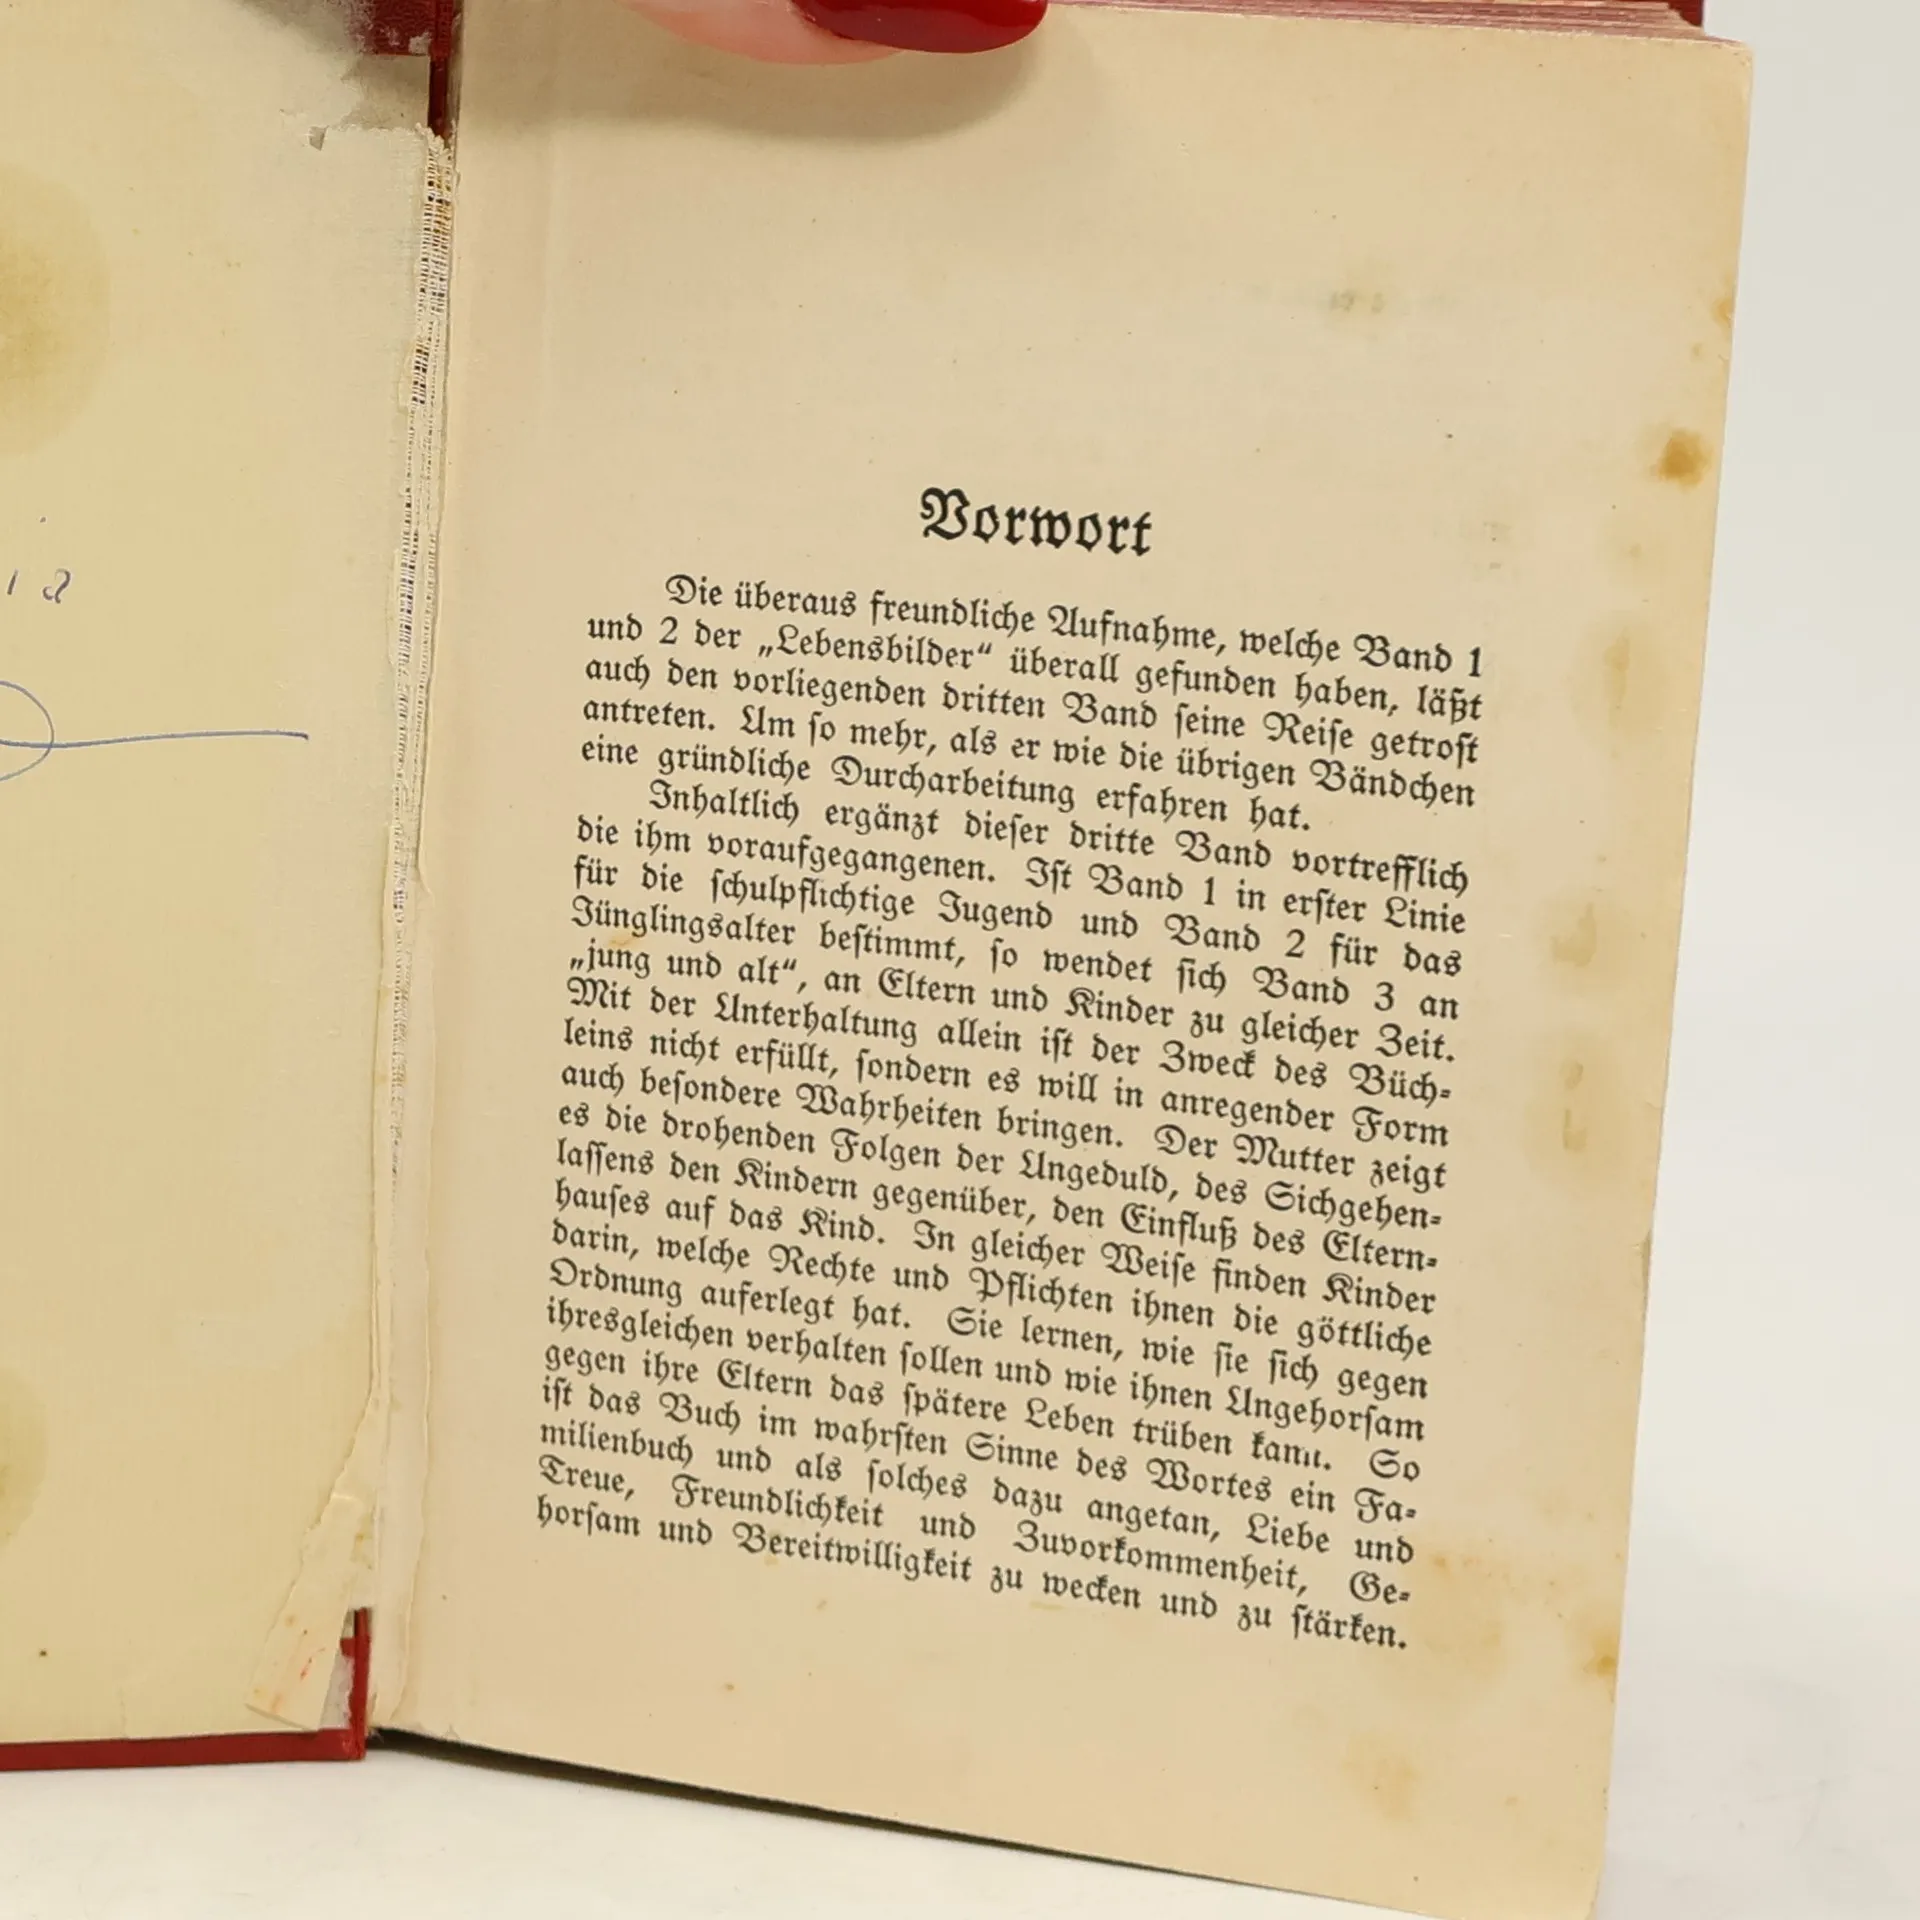 Vorwort
Die überaus freundliche Aufnahme, welche Band 1
und 2 der „Lebensbilder“ überall gefunden haben, läßt
auch den vorliegenden dritten Band seine Reise getrost
antreten. Um so mehr, als er wie die übrigen Bändchen
eine gründliche Durcharbeitung erfahren hat.
Inhaltlich ergänzt dieser dritte Band vortrefflich
die ihm voraufgegangenen. Ist Band 1 in erster Linie
für die schulpflichtige Jugend und Band 2 für das
Jünglingsalter bestimmt, so wendet sich Band 3 an
„jung und alt“, an Eltern und Kinder zu gleicher Zeit.
Mit der Unterhaltung allein ist der Zweck des Büch-
leins nicht erfüllt, sondern es will in anregender Form
auch besondere Wahrheiten bringen. Der Mutter zeigt
es die drohenden Folgen der Ungeduld, des Sichgehen-
lassens den Kindern gegenüber, den Einfluß des Eltern-
hauses auf das Kind. In gleicher Weise finden Kinder
darin, welche Rechte und Pflichten ihnen die göttliche
Ordnung auferlegt hat. Sie lernen, wie sie sich gegen
ihresgleichen verhalten sollen und wie ihnen Ungehorsam
gegen ihre Eltern das spätere Leben trüben kann. So
ist das Buch im wahrsten Sinne des Wortes ein Fa-
milienbuch und als solches dazu angetan, Liebe und
Treue, Freundlichkeit und Zuvorkommenheit, Ge-
horsam und Bereitwilligkeit zu wecken und zu stärken.